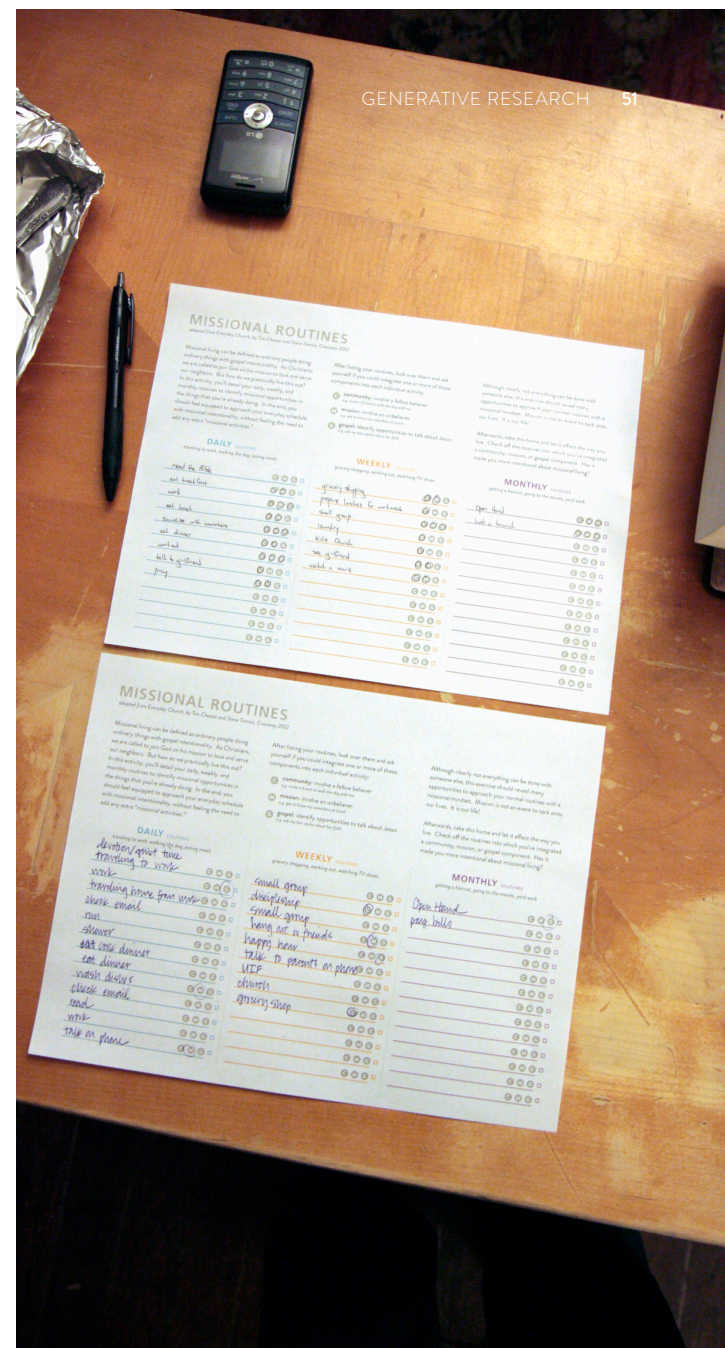 GENERATIVE RESEARCH 51
LG
MISSIONAL ROUTINES
adapted from Everyday Church, by Tim Chester and Steve Timmis, Crossway 2012
Missional living can be defined as ordinary people doing
ordinary things with gospel intentionality. As Christians,
we are called to join God on his mission to love and serve
our neighbors. But how do we practically live this out?
In this activity, you'll detail your daily, weekly, and
monthly routines to identify missional opportunities in
the things that you're already doing. In the end, you
should feel equipped to approach your everyday schedule
with missional intentionality, without feeling the need to
add any extra "missional activities."
After listing your routines, look over them and ask
yourself if you could integrate one or more of these
components into each individual activity:
C community: involve a fellow believer
M mission: involve an unbeliever
G gospel: identify opportunities to talk about Jesus
Although clearly not everything can be done with
someone else, this exercise should reveal many
opportunities to approach your normal routines with a
missional mindset. Mission is not an event to tack onto
our lives. It is our life!
Afterwards, take this home and let it affect the way you
live. Check off the routines into which you've integrated
a community, mission, or gospel component. Has it
made you more intentional about missional living?
DAILY routines
traveling to work, walking the dog, eating meals
read the Bible
eat breakfast
work
eat lunch
socialize with coworkers
eat dinner
workout
talk to girlfriend
pray
WEEKLY routines
grocery shopping, working out, watching TV shows
grocery shopping
prepare lunches for workweek
small group
laundry
Kids Church
see girlfriend
watch a movie
MONTHLY routines
getting a haircut, going to the movies, yard work
Open Hand
host a brunch
MISSIONAL ROUTINES
adapted from Everyday Church, by Tim Chester and Steve Timmis, Crossway 2012
Missional living can be defined as ordinary people doing
ordinary things with gospel intentionality. As Christians,
we are called to join God on his mission to love and serve
our neighbors. But how do we practically live this out?
In this activity, you'll detail your daily, weekly, and
monthly routines to identify missional opportunities in
the things that you're already doing. In the end, you
should feel equipped to approach your everyday schedule
with missional intentionality, without feeling the need to
add any extra "missional activities."
After listing your routines, look over them and ask
yourself if you could integrate one or more of these
components into each individual activity:
C community: involve a fellow believer
M mission: involve an unbeliever
G gospel: identify opportunities to talk about Jesus
Although clearly not everything can be done with
someone else, this exercise should reveal many
opportunities to approach your normal routines with a
missional mindset. Mission is not an event to tack onto
our lives. It is our life!
Afterwards, take this home and let it affect the way you
live. Check off the routines into which you've integrated
a community, mission, or gospel component. Has it
made you more intentional about missional living?
DAILY routines
traveling to work, walking the dog, eating meals
devotion/quiet time
traveling to work
work
traveling home from work
check email
run
shower
cook dinner
eat dinner
wash dishes
check email
read
work
talk on phone
WEEKLY routines
grocery shopping, working out, watching TV shows
small group
discipleship
small group
hang out w friends
happy hour
talk to parents on phone
church
grocery shop
MONTHLY routines
getting a haircut, going to the movies, yard work
Open Hand
pay bills